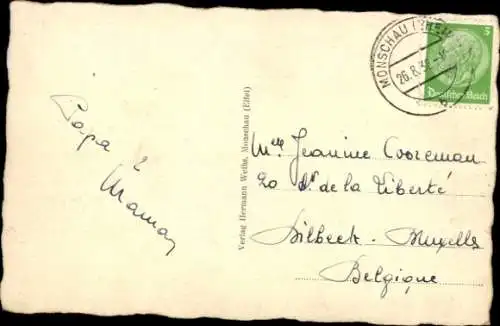 Papa &
Maman
Verlag Hermann Weihs, Monschau (Eifel)
MONSCHAU
26.8.3
5
Deutsches Reich
Mlle Jeanine Cooreman
20 Av de la Liberté
Dilbeek - Bruxelles
Belgique